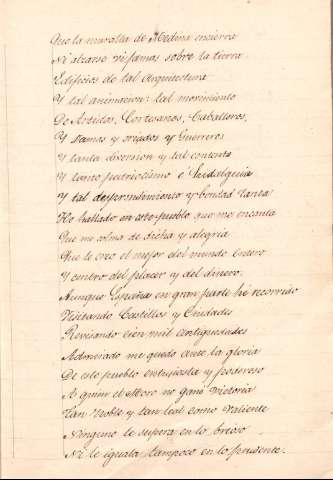 Que la muralla de Medina encierra
Ni alzarse vi jamas sobre la tierra
Edificios de tal Arquitectura
Y tal animacion: tal movimiento
De Artistas, Cortesanos, Caballeros,
Y Damas y criados y Guerreros
Y tanta diversion y tal contento
Y tanto patriotismo é hidalguia
Y tal desprendimiento y bondad tanta
He hallado en este pueblo que me encanta
Que me colma de dicha y alegria
Que le creo el mejor del mundo entero
Y centro del placer y del dinero.
Aunque España en gran parte hé recorrido
Visitando Castillos y Ciudades
Revisando cien mil antiguedades
Admirado me quedo ante la gloria
De este pueblo entusiasta y poderoso
A quien el Moro no ganó Victoria
Tan Noble y tan leal como Valiente
Ninguno le supera en lo brioso
Ni le iguala tampoco en lo prudente.